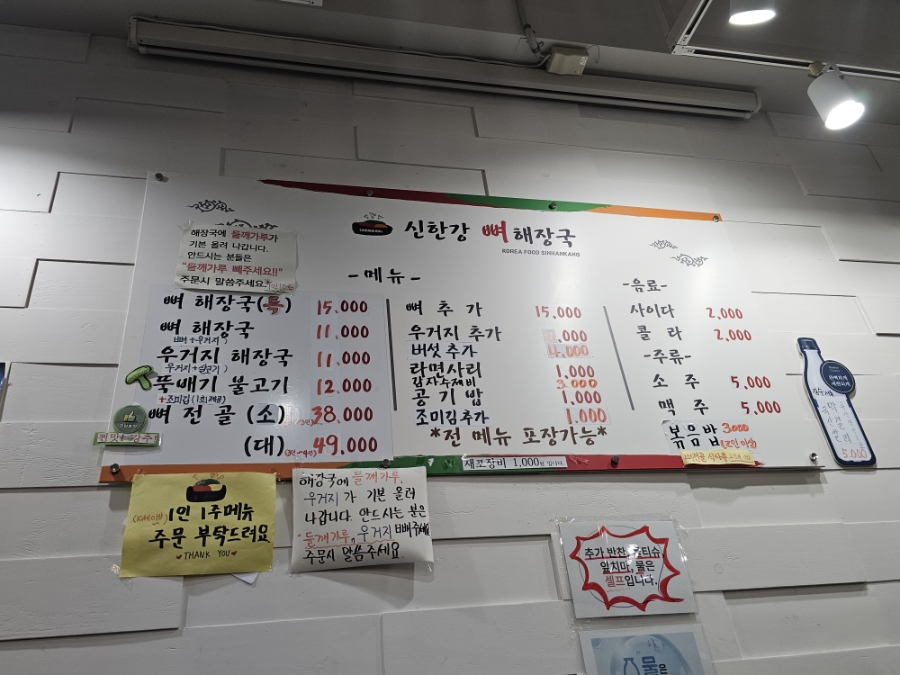 신한강 뼈 해장국
KOREA FOOD SINHANKANG
해장국에 들깨가루가
기본 올려 나갑니다.
안드시는 분들은
"들깨가루 빼주세요!!"
주문시 말씀주세요
-메뉴-
뼈 해장국(특) 15,000
뼈 해장국 11,000
(뼈+우거지)
우거지 해장국 11,000
뚝배기 불고기 12,000
+조미김(1회제공)
뼈 전골 (소) 38,000
(대) 49,000
뼈 추 가 15,000
우거지 추가 ,000
버섯 추가 4,000
라면사리 1,000
감자수제비 3000
공 기 밥 1,000
조미김추가 1,000
*전 메뉴 포장가능*
재포장비 1,000원
-음료-
사이다 2,000
콜 라 2,000
-주류-
소 주 5,000
맥 주 5,000
볶음밥 3000
(2인 이상)
5,000
1인 1주메뉴
주문 부탁드려요
THANK YOU
해장국에 들깨가루,
우거지가 기본 올려
나갑니다. 안드시는 분은
들깨가루, 우거지 빼주세요
주문시 말씀주세요
추가 반찬, 물티슈,
앞치마, 물은
셀프입니다.
물은